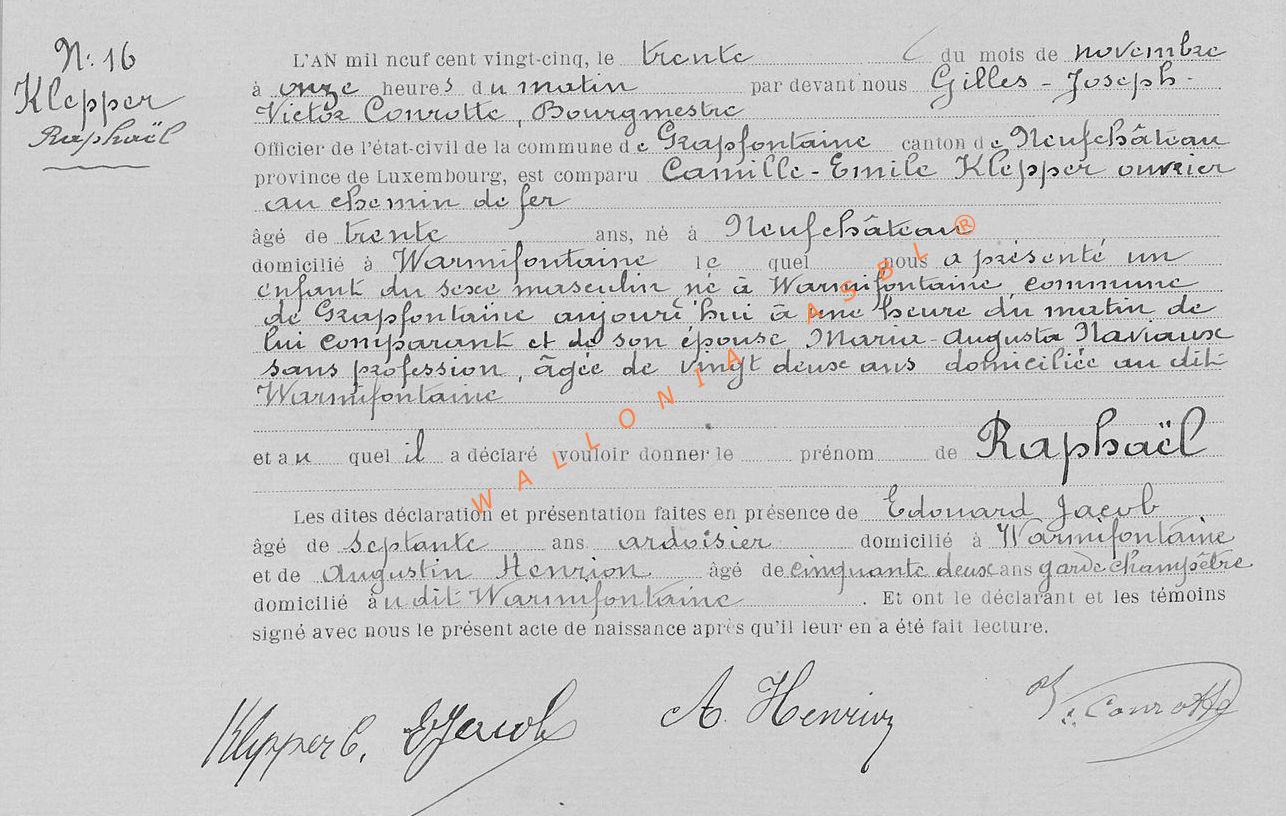 N: 16
Klepper
Raphaël
L'AN mil neuf cent vingt-cinq, le trente du mois de novembre
à onze heures du matin par devant nous Gilles - Joseph -
Victor Conrotte, Bourgmestre
Officier de l'état-civil de la commune de Grapfontaine canton de Neufchâteau
province de Luxembourg, est comparu Camille - Emile Klepper ouvrier
au chemin de fer
âgé de trente ans, né à Neufchâteau
domicilié à Warmifontaine le quel nous a présenté un
enfant du sexe masculin né à Warmifontaine, commune
de Grapfontaine aujourd'hui à une heure du matin de
lui comparant et de son épouse Maria - Augusta Naviaux
sans profession, âgée de vingt deux ans domiciliée au dit
Warmifontaine
et au quel il a déclaré vouloir donner le prénom de Raphaël
Les dites déclaration et présentation faites en présence de Edouard Jacob
âgé de septante ans ardoisier domicilié à Warmifontaine
et de Augustin Henrion âgé de cinquante deux ans garde champêtre
domicilié au dit Warmifontaine. Et ont le déclarant et les témoins
signé avec nous le présent acte de naissance après qu'il leur en a été fait lecture.
Klepper C. E Jacob A. Henrion V. Conrotte
WALLONIA ASBL ®